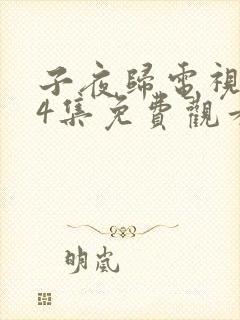 子夜歸電視
4集免費觀
明嵐